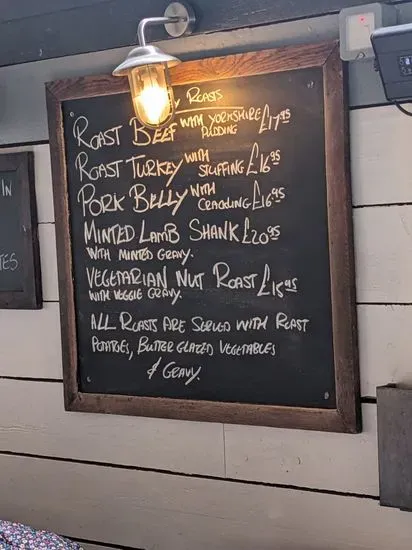 Roasts
Roast Beef with Yorkshire Pudding £17.95
Roast Turkey with Stuffing £16.95
Pork Belly with Crackling £16.95
Minted Lamb Shank £20.95
with minted gravy.
Vegetarian Nut Roast £15.95
with veggie gravy.
All Roasts are served with Roast
Potatoes, Butter glazed vegetables
& Gravy.
IN